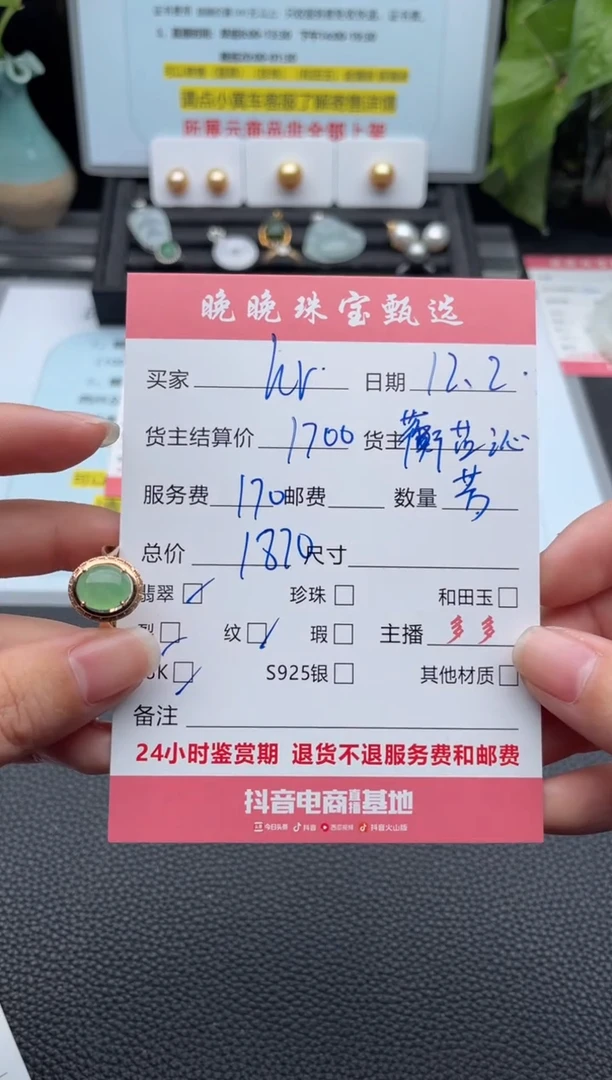 请点小黄车客服了解售后详情
所展示商品非全部上架
晚晚珠宝甄选
买家 hr. 日期 12.2.
货主结算价 1700 货主
服务费 170 邮费 数量
总价 1870 尺寸
翡翠 珍珠 □ 和田玉 □
纹 瑕 □ 主播 多多
K S925银 □ 其他材质 □
备注
24小时鉴赏期 退货不退服务费和邮费
抖音电商直播基地
今日头条 抖音 西瓜视频 抖音火山版